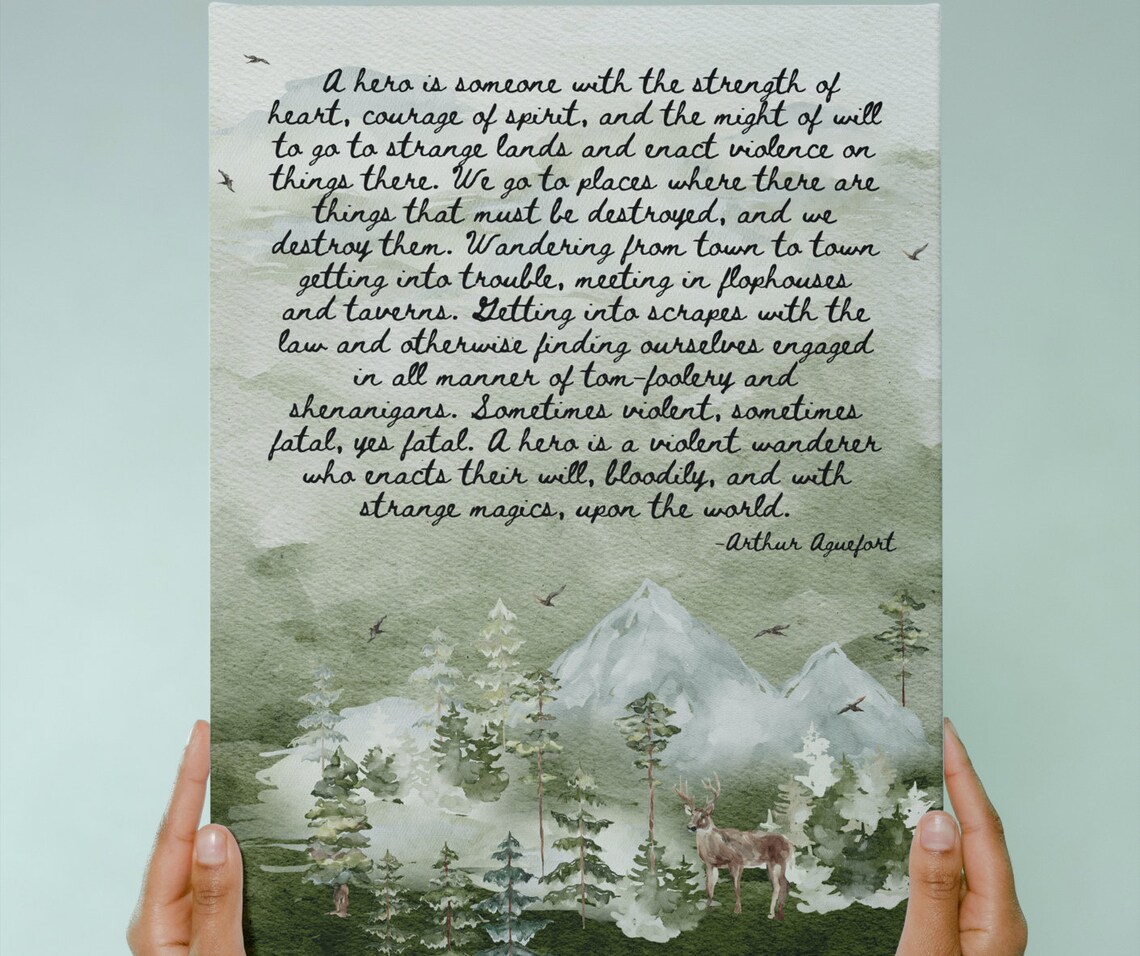 A hero is someone with the strength of
heart, courage of spirit, and the might of will
to go to strange lands and enact violence on
things there. We go to places where there are
things that must be destroyed, and we
destroy them. Wandering from town to town
getting into trouble, meeting in flophouses
and taverns. Getting into scrapes with the
law and otherwise finding ourselves engaged
in all manner of tom-foolery and
shenanigans. Sometimes violent, sometimes
fatal, yes fatal. A hero is a violent wanderer
who enacts their will, bloodily, and with
strange magics, upon the world.
-Arthur Aguefort